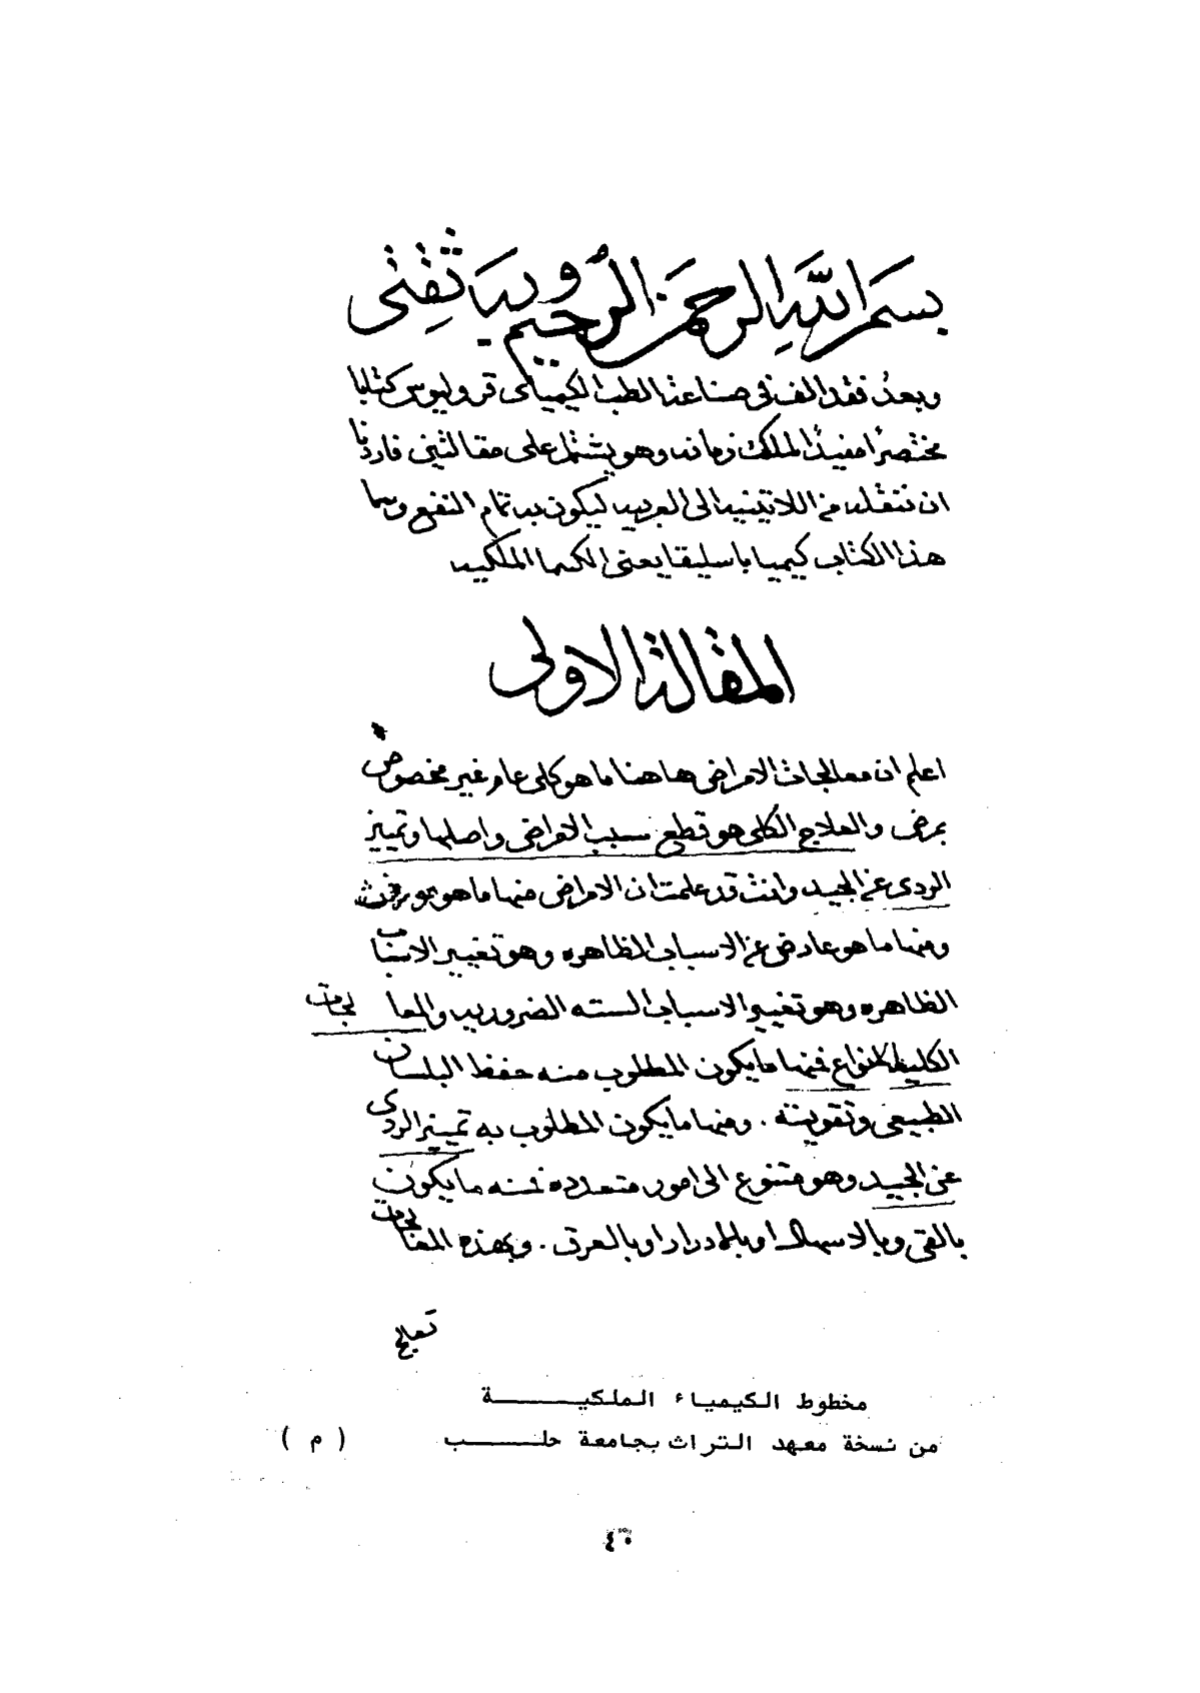 بسم الله الرحمن الرحيم وبه ثقتي
وبعد فقد الف في صناعة الطب الكيمياى قروليوس كتابا
مختصرا مفيدا لملك زمانه وهو يشتمل على مقالتين فاردنا
ان ننقله من اللاتينيه الى العربيه ليكون به تمام النفع وسما
هذا الكتاب كيميا باسليقا يعنى الكيما الملكيه
المقالة الاولى
اعلم ان معالجات الامراض هاهنا ما هو كلى عام غير مخصوص
بمرض والعلاج الكلى هو قطع سبب الامراض واصلها وتمييز
الردى عن الجيد وانت قد علمت ان الامراض منها ما هو موروث
ومنها ما هو عارض عن الاسباب الظاهره وهو تغيير الاسباب
الظاهره وهو تغيير الاسباب السته الضروريه والمعالجات
الكليه انواع فمنها ما يكون المطلوب منه حفظ البلسان
الطبيعى وتقويته . ومنها ما يكون المطلوب به تمييز الردى
عن الجيد وهو متنوع الى امور متعدده فمنه ما يكون
بالقى وبالاسهال او بالادرار او بالعرق . وبهذه المعالجات
تعالج
مخطوط الكيمياء الملكيـــــة
من نسخة معهد التراث بجامعة حلـــب ( م )
٤٠